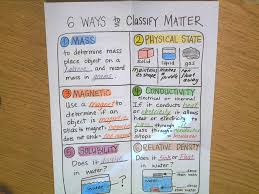 6 WAYS to CLASSIFY MATTER
1 MASS
to determine mass
place object on a
balance and record
mass in grams.
2 PHYSICAL STATE
solid
liquid
gas
maintains
its shape
makes
a puddle
can
float
away
3 MAGNETIC
Use a magnet to
determine if an
object is magnetic
sticks to magnet=
4 CONDUCTIVITY
electrical or thermal
If it conducts heat
or electricity it will
allow heat or electricity to
pass through it.
pass through
5 SOLUBILITY
Does it dissolve
in water?
6 RELATIVE DENSITY
Does it Sink or Float
in water?